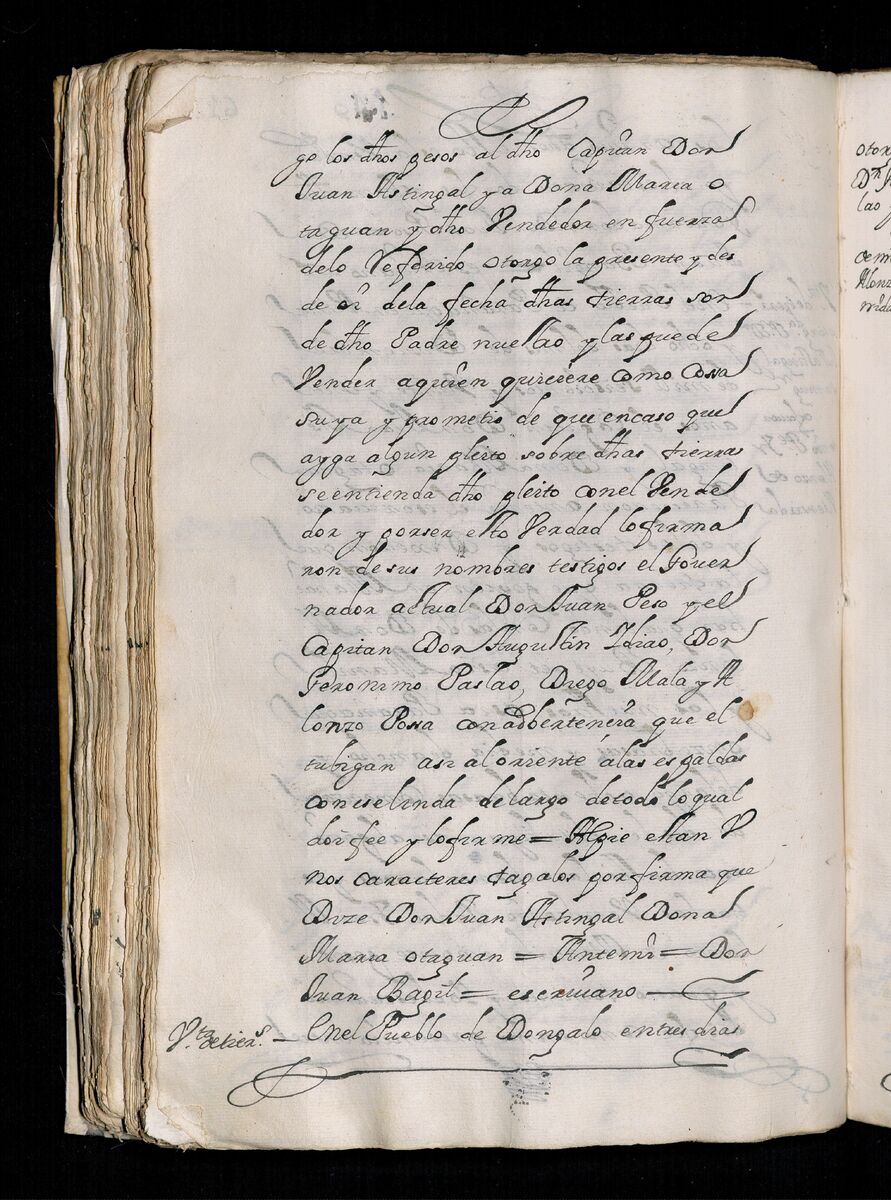 go los dhos pesos al dho Capitan Don
Juan Astingal y a Doña Maria O
taguan y dho Vendedor en fuerza
delo Referido otorgo la presente y des
de oi dela fecha dhas tierras son
de dho Padre nuestro y las puede
Vender a quien quiciere como Cosa
suya y prometio de que encaso que
ayga algun pleito sobre dhas tierras
se entienda dho pleito conel Vende
dor y porser esto Verdad lo firma
ron de sus nombres testigos el Gover
nador actual Don Juan Peso y el
Capitan Don Augustin Idiao, Don
Geronimo Paslao, Diego Mala y A
lonzo Posa con adbertencia que el
tubigan asi al oriente a las espaldas
con ese linda de largo de todo lo qual
doi fee y lo firme = Al pie estan V
nos caracteres tagalos por firma que
Dize Don Juan Astingal Dona
Maria otaguan = Antemi = Don
Juan Bagil = escriuano
Vta. de tierrs. - Enel Pueblo de Dongalo entres dias
otor
Dn
lao
Alonz